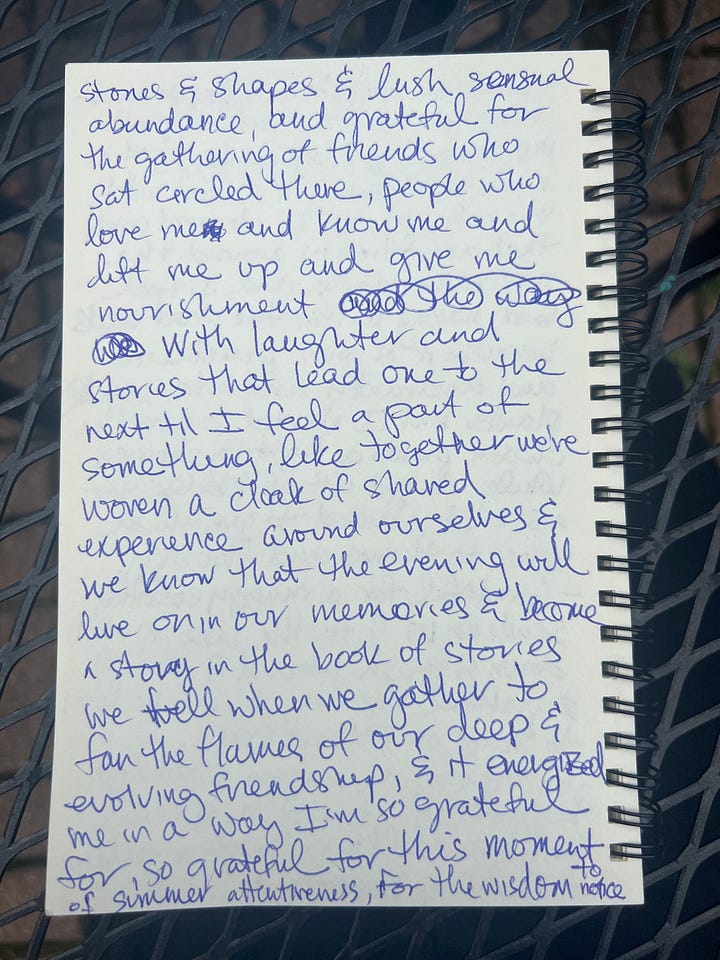 stones & shapes & lush sensual
abundance, and grateful for
the gathering of friends who
sat circled there, people who
love me and know me and
lift me up and give me
nourishment and the way
with laughter and
stories that lead one to the
next til I feel a part of
something, like together we've
woven a cloak of shared
experience around ourselves &
we know that the evening will
live on in our memories & become
a story in the book of stories
we tell when we gather to
fan the flames of our deep &
evolving friendship, & it energized
me in a way I'm so grateful
for, so grateful for this moment
of summer attentiveness, for the wisdom to notice